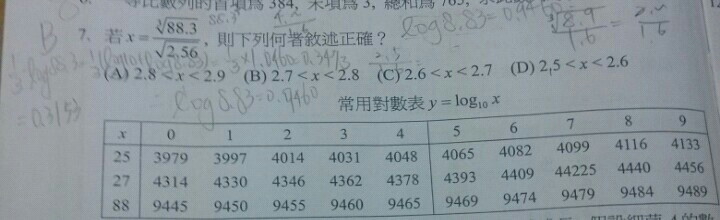 等比數列的首項為 384, 末項為 3, 總和為 765,
B
7. 若 x = ∛88.3 / √2.56 , 則下列何者敘述正確？
log8.83=0.9460
(A) 2.8 < x < 2.9 (B) 2.7 < x < 2.8 (C) 2.6 < x < 2.7 (D) 2.5 < x < 2.6
log8.83=0.9460
常用對數表 y = log₁₀ x
x 0 1 2 3 4 5 6 7 8 9
25 3979 3997 4014 4031 4048 4065 4082 4099 4116 4133
27 4314 4330 4346 4362 4378 4393 4409 44225 4440 4456
88 9445 9450 9455 9460 9465 9469 9474 9479 9484 9489